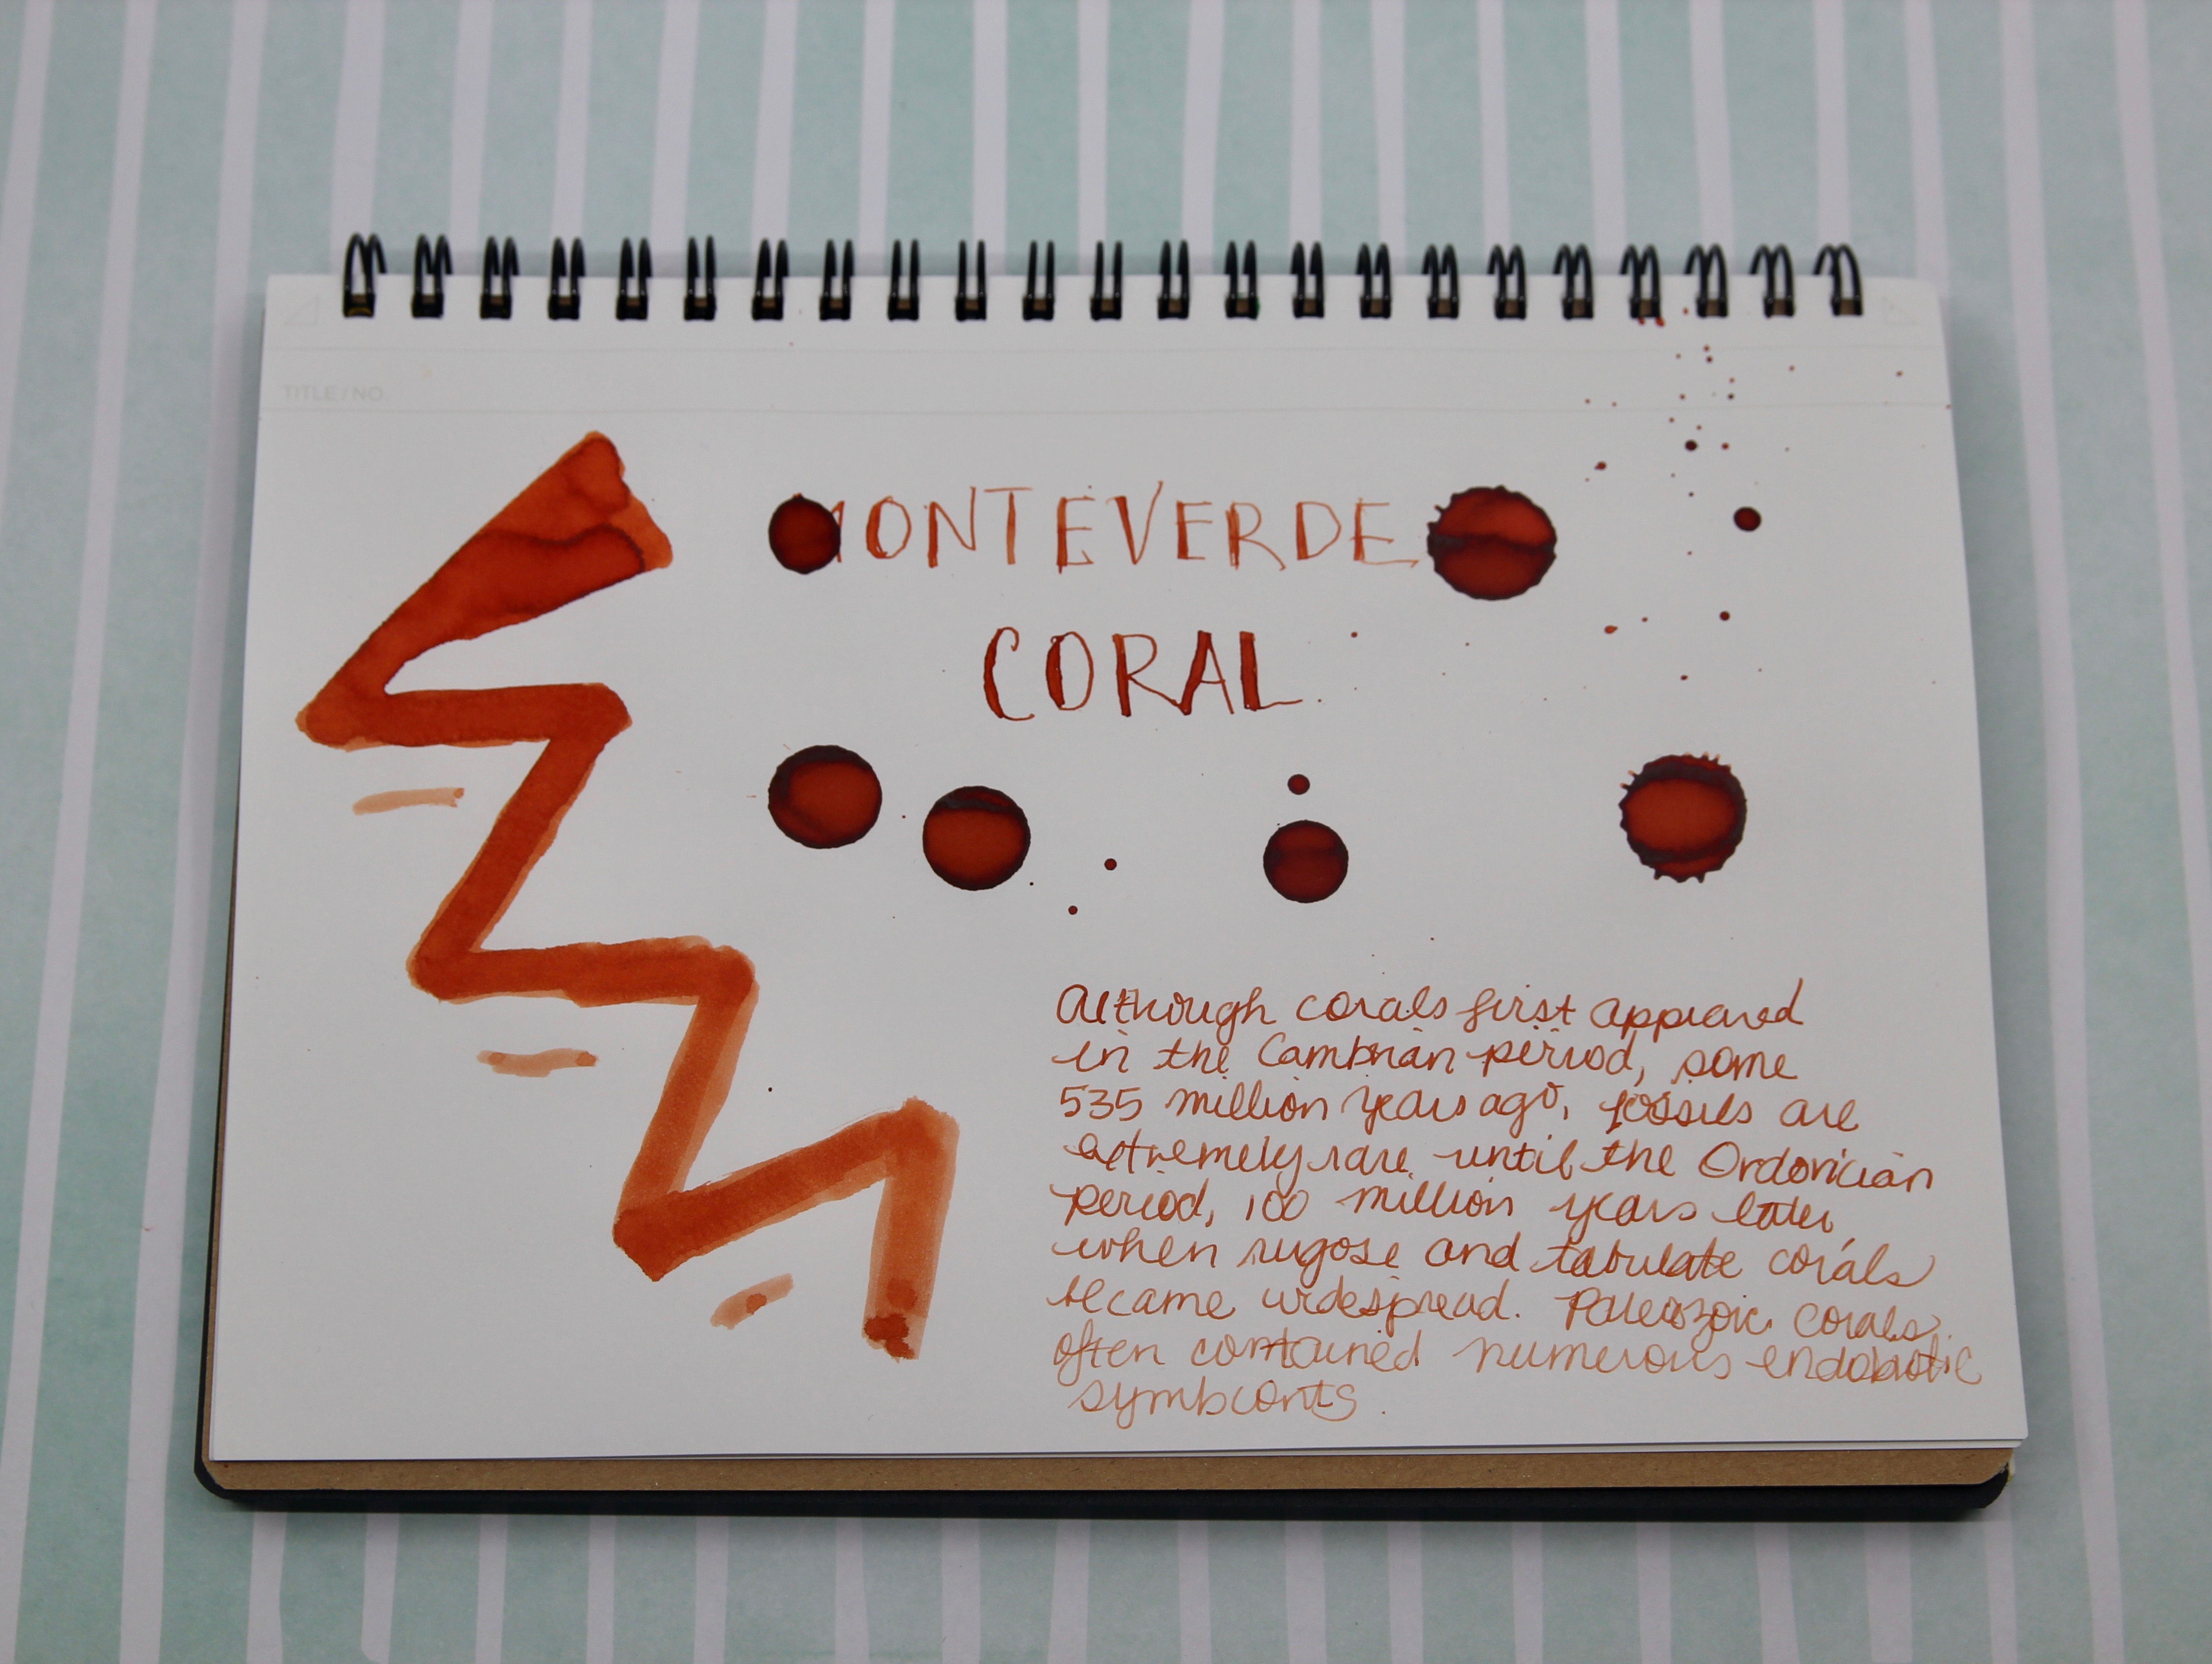 TITLE / NO.
MONTEVERDE
CORAL
Although corals first appeared
in the Cambrian period, some
535 million years ago, fossils are
extremely rare until the Ordovician
period, 100 million years later,
when rugose and tabulate corals
became widespread. Paleozoic corals
often contained numerous endobiotic
symbionts.